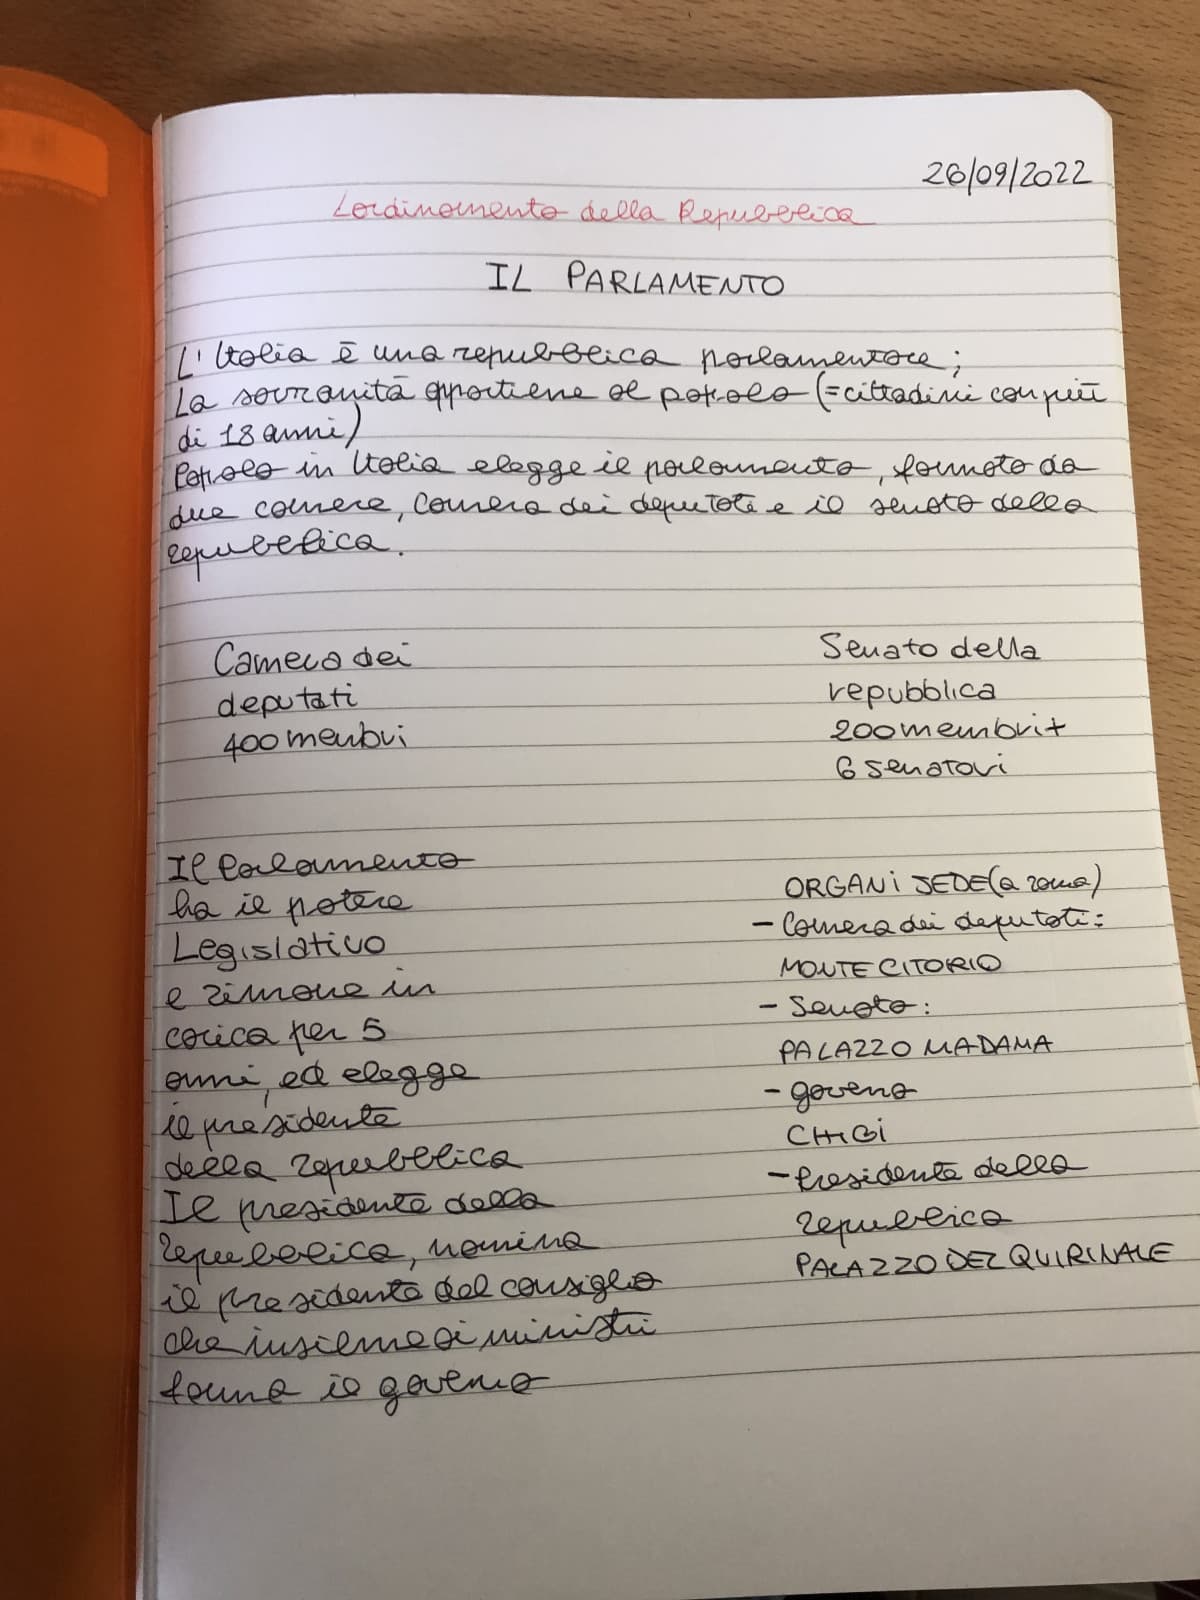 26/09/2022
Lordinamento della Repubblica
IL PARLAMENTO
L'Italia è una repubblica parlamentare;
La sovranità appartiene al popolo (=cittadini con più
di 18 anni)
Popolo in Italia elegge il parlamento, formato da
due camere, Camera dei deputati e il senato della
repubblica.
Camera dei
deputati
400 membri
Senato della
repubblica
200 membri +
6 senatori
Il Parlamento
ha il potere
Legislativo
e rimane in
carica per 5
anni, ed elegge
il presidente
della repubblica
Il presidente della
repubblica, nomina
il presidente del consiglio
che insieme ai ministri
forma il governo
ORGANI SEDE (a roma)
- Camera dei deputati:
MONTE CITORIO
- Senato:
PALAZZO MADAMA
- goveno
CHIGI
- Presidente della
repubblica
PALAZZO DEL QUIRINALE